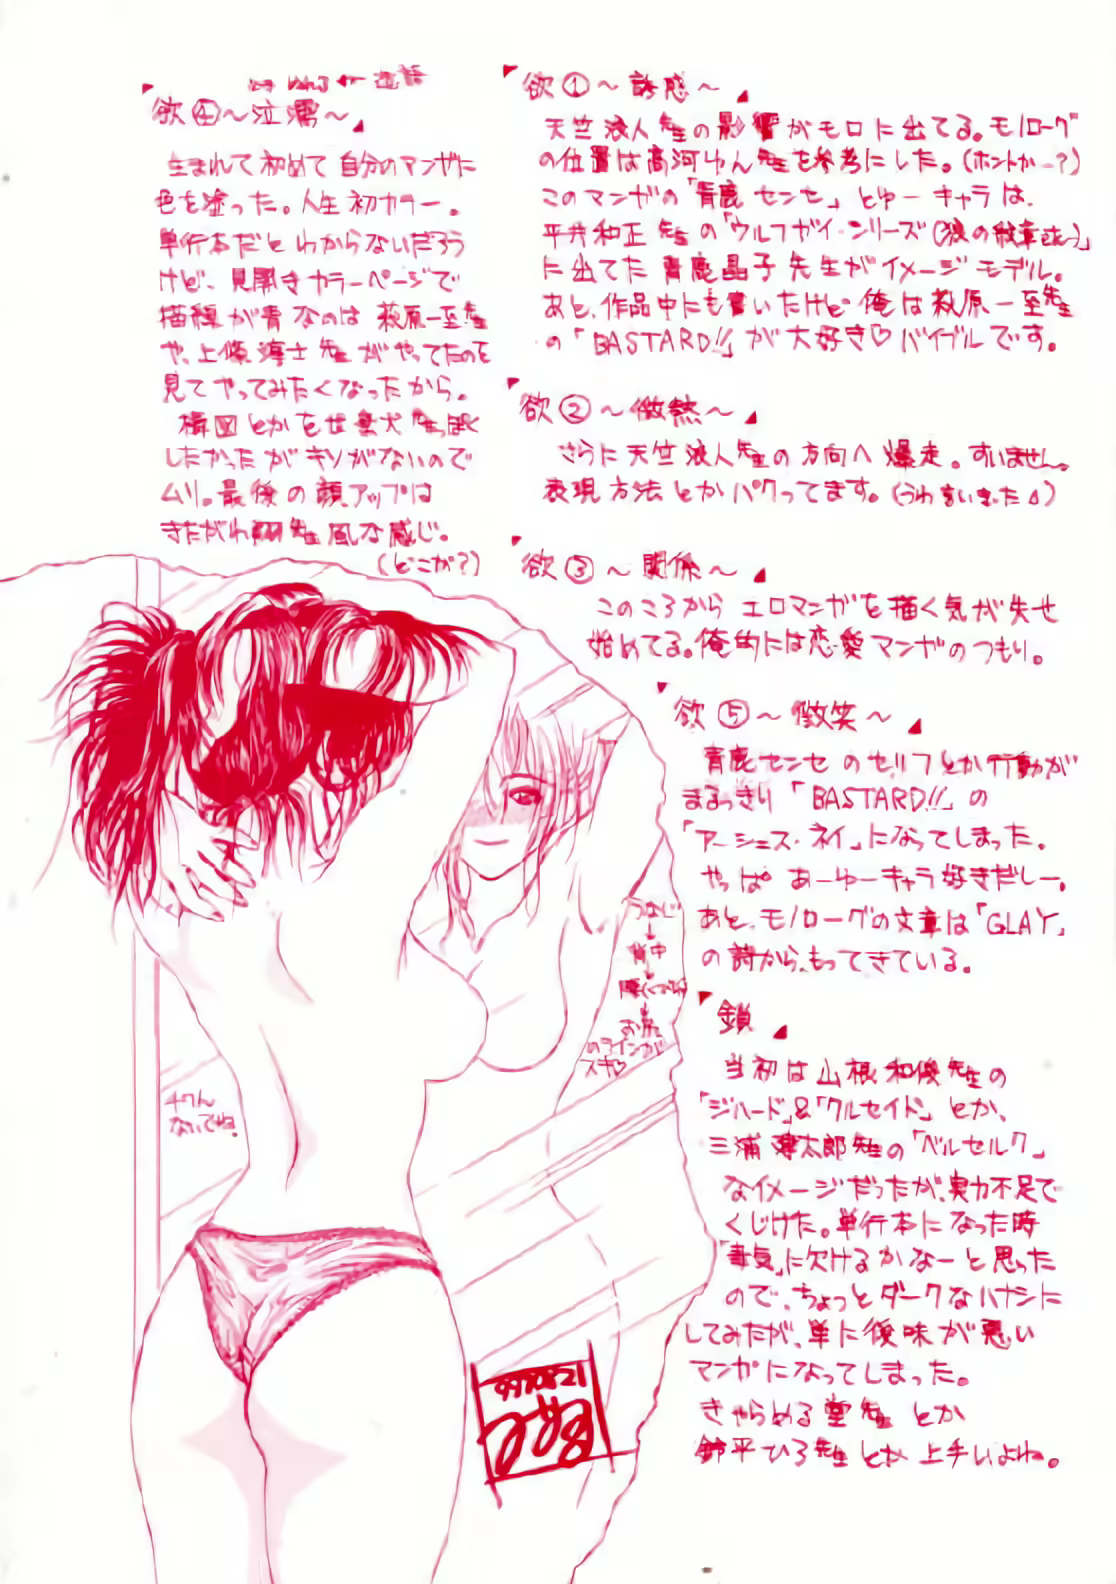 欲①～誘惑～
天竺浪人先生の影響がモロに出てる。モノローグ
の位置は高河ゆん先生を参考にした。(ホントかー?)
このマンガの「青鹿センセ」とゆーキャラは、
平井和正先生の「ウルフガイ・シリーズ(狼の紋章さえ～)」
に出てた青鹿晶子先生がイメージモデル。
あと、作品中にも書いたけど俺は萩原一至先生
の「BASTARD!!」が大好き♡バイブルです。
欲②～微熱～
さらに天竺浪人先生の方向へ爆走。すいません。
表現方法とかパクってます。(うわ言いきった)
欲③～関係～
このころからエロマンガを描く気が失せ
始めてる。俺的には恋愛マンガのつもり。
欲④～泣濡～
生まれて初めて自分のマンガに
色を塗った。人生初カラー。
単行本だとわからないだろう
けど、見開きカラーページで
描線が青なのは萩原一至先生
や、上條淳士先生がやってたのを
見てやってみたくなったから。
構図とかを世棄犬先生っぽく
したかったがキソがないので
ムリ。最後の顔アップは
きたがわ翔先生風な感じ。
(どこが?)
欲⑤～微笑～
青鹿センセのセリフとか行動が
まるっきり「BASTARD!!」の
「アーシェス・ネイ」になってしまった。
やっぱあーゆーキャラ好きだしー。
あと、モノローグの文章は「GLAY」
の詩から、もってきている。
鎖
当初は山根和俊先生の
「ジハード」&「クルセイド」とか、
三浦建太郎先生の「ベルセルク」
なイメージだったが、実力不足で
くじけた。単行本になった時
「毒気」に欠けるかなーと思った
ので、ちょっとダークなハナシに
してみたが、単に後味が悪い
マンガになってしまった。
きゃらめる堂先生とか
鈴平ひろ先生とか上手いよね。
うなじ
↓
背中
↓
腰(くびれ)
↓
お尻
のラインが
スキ♡
チクん
ないでね。
990821